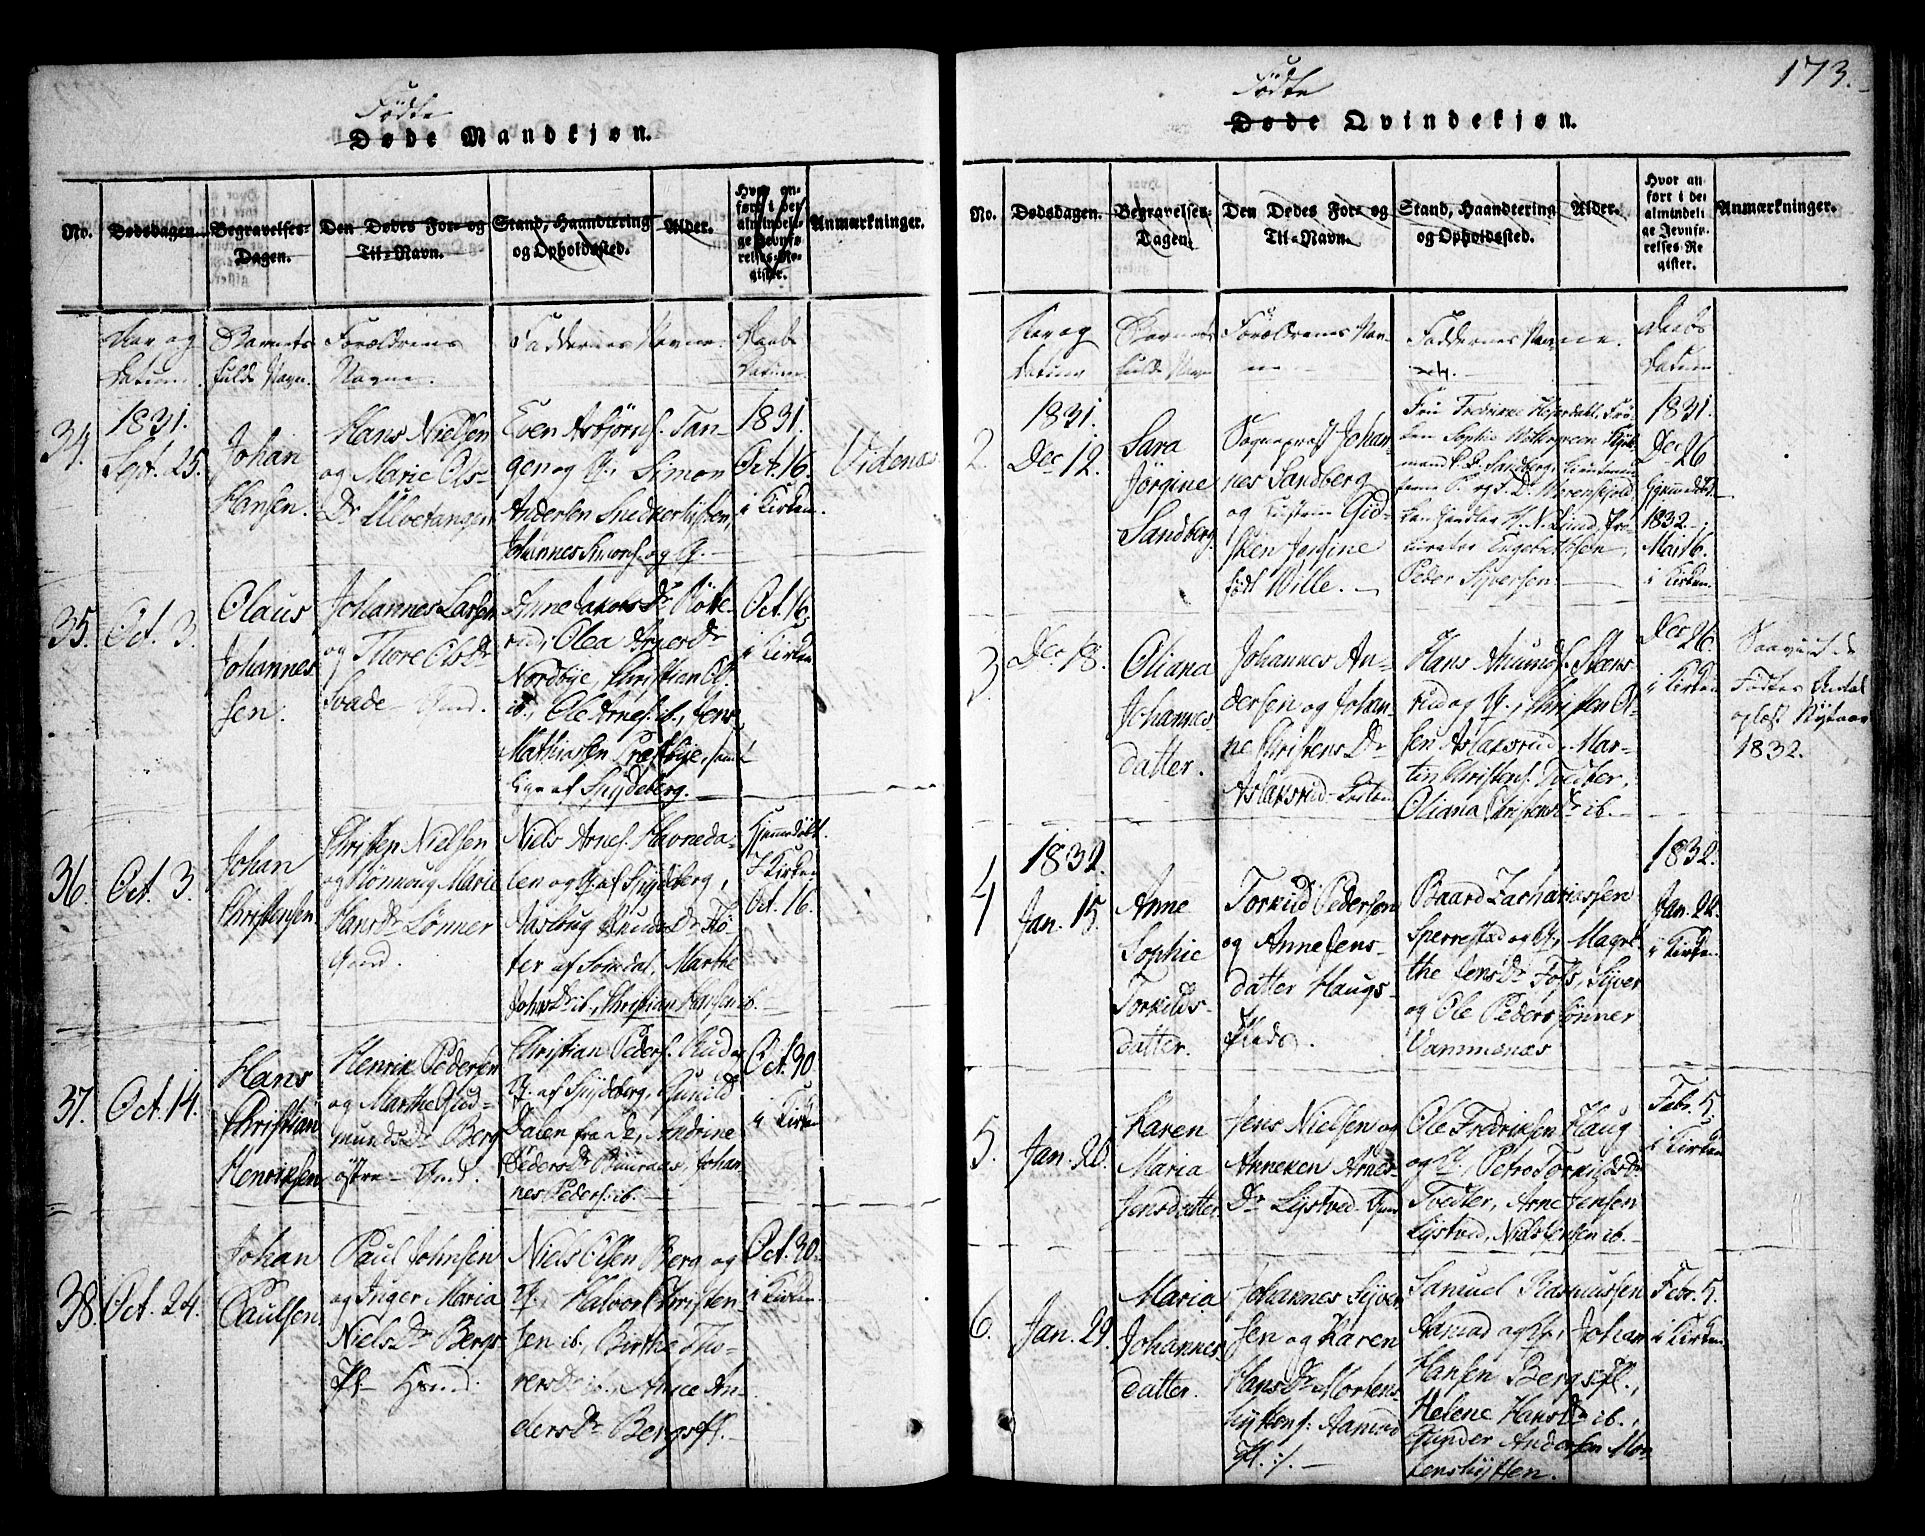 Födte
Döde Mandkjøn.
No.
Dødsdagen.
Begravelses-
Dagen.
Den Dødes For- og
Til-Navn.
Stand, Haandtering
og Opholdssted.
Alder.
Hvor an-
ført i det
almindeli-
ge Jevnfø-
relses-Re-
gister.
Anmærkninger.
Aar og
Datum.
Barnets
fulde Navn.
Forældrenes
Navne.
Faddernes Navne.
Daabs
Datum
34.
1831.
Sept. 25.
Johan
Hansen.
Hans Nielsen
og Marie Ols-
Dr
Even Asbjörns. Tan-
gen og Q., Simon
Andersen Snekkerhytten,
Johannes Simons. og Q.
1831.
Oct. 16.
i Kirken.
35.
Oct. 3.
Claus
Johannes
sen.
Johannes Larsen
og Thore Ols Dr
Svade
Anne Jakobs Dr
Olea
Nordbye, Christian Ol.
ib., Ole Arnes. ib., Jens
Mathiassen Præstbye,
af Spydeberg.
Oct. 16.
i Kirken
36.
Oct. 3.
Johan
Christensen
Christen Nielsen
og Marie
Hans Dr Lönner
Niels Arnes. Havneda-
len og Q. af Spydeberg,
Knuds Dr
af Marthe
Johns Dr ib., Christian Hansen ib.
Hjemmedöbt.
I Kirken
Oct. 16.
37.
Oct. 14.
Hans
Christian
Henriksen
Henrik Pedersen
og Marthe Gud-
munds Dr Berg
östre
Christian Peders. Rud og
Q. af Spydeberg, Gunild
Dalen fra De, Andrine
Peders Dr Johan
nes Peders. ib.
Oct. 30
i Kirken
38.
Oct. 24.
Johan
Paulsen
Paul Johnsen
og Inger Maria
Niels Dr Bergs
Niels Olsen Berg og
Q., Halvor Christen
sen ib., Birthe Tho-
rers Dr ib., Anne An-
ders Dr Bergsfl.
Oct. 30.
i Kirken.
173.
Födte
Døde Qvindekjøn.
No.
Dødsdagen.
Begravelses-
Dagen.
Den Dødes For- og
Til-Navn.
Stand, Haandtering
og Opholdssted.
Alder.
Hvor an-
ført i det
almindeli-
ge Jevnfø-
relses Re-
gister.
Anmærkninger.
Aar og
Datum
Barnets
fulde Navn
Forældrenes Nav-
ne
Faddernes Navne.
Daabs
Datum
2.
1831.
Dec 12.
Sara
Jörgine
Sandberg.
Sogneprest Johan-
nes Sandberg
og Hustru Gid-
sken Jensine
född Wille.
Sandberg,
Engebrethsen,
Peder Syversen
1831.
Dec 26
Hjemmedöbt.
1832
Mai 16.
i Kirken.
3
Dec. 18.
Oliana
Johannes-
datter.
Johannes An-
dersen og Johan-
ne Christens Dr
Aslaksrud
Hans Amunds. Stens
rud og Q., Christen Ol-
sen Aslaksrud, Mar-
tin Christens. Tvedter,
Oliana Christens Dr ib.
Dec 26.
i Kirken
Nytaar
1832.
4
1832.
Jan. 15.
Anne
Sophie
Torkilds-
datter.
Torkild Pedersen
og Anne Jens-
datter Haugs-
Baard Zachariassen
Sperrestad og Q., Magre-
the Jens Dr Foss, Syver
og Ole Pederssönner
Vammenæs
1832.
Jan. 22.
i Kirken.
5.
Jan. 20.
Karen
Maria
Jensdatter
Jens Nielsen og
Anneken Arnes
Dr Lystved
Ole Fredriksen Haug
og Q., Petro Torkilds Dr
Tvedter, Arne Jensen
Lystved, Niels Jensen ib.
Febr. 5.
i Kirken
6.
Jan. 29.
Maria
Johannes
datter.
Johannes Syver
sen og Karen
Hans Dr Mortens
hytten
Samuel Rasmussen
Aamod og Q., Johan
Hansen Bergsfl.,
Helene Hans Dr ib.,
Gunder Andersen Mor-
tenshytten.
Febr. 5.
i Kirken